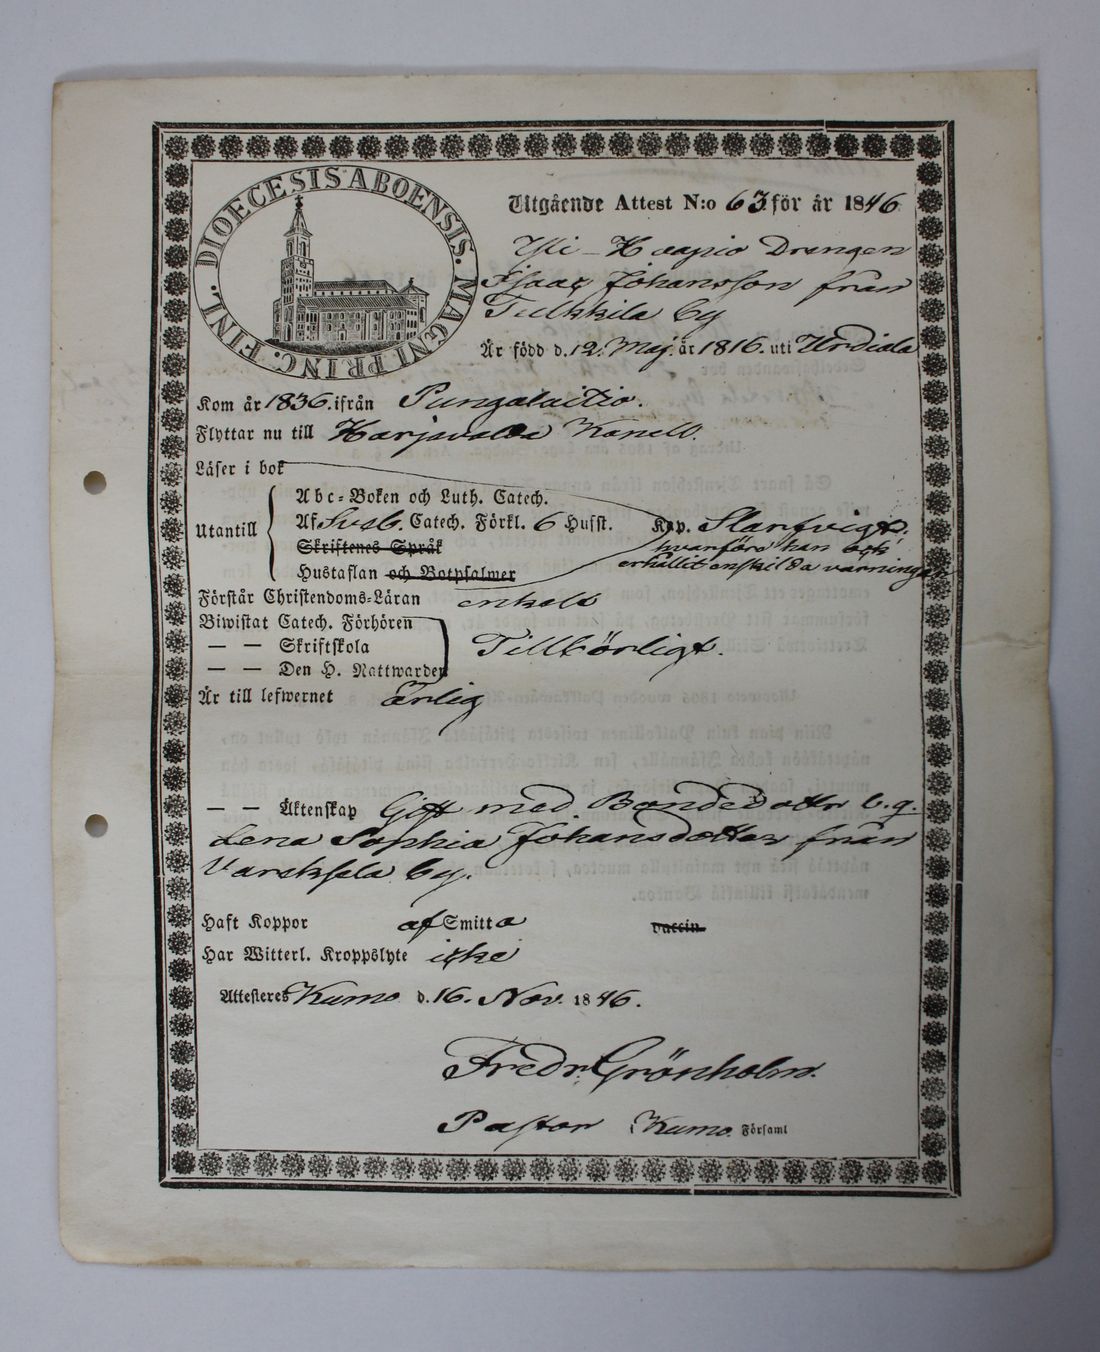 DIOECESIS ABOENSIS. MAGNI PRINC. FINL.
Utgående Attest N:o 63 för år 1846
Yli-Haapio Drengen
Isaac Johansson från
Tulkkila by
Är född d. 12. Maj. år 1816. uti Urdiala
Kom år 1836. ifrån Pungalaitio.
Flyttar nu till Harjavalda Kapell.
Läser i bok
Utantill
Abc-Boken och Luth. Catech.
Af Sveb. Catech. Förkl. 6 Husst. Kap. Slarfvigt.
Skriftenes Språk hvarföre han ock
Hustaflan och Botpsalmer erhållit enskilda varningar
Förstår Christendoms-Läran enkelt
Biwistat Catech. Förhören
— — Skriftskola Tillbörligt.
— — Den H. Nattwarden
Är till lefwernet ärlig
— — Äktenskap Gift med Bondedottr b. q.
Lena Sophia Johansdotter från
by.
Haft Koppor af Smitta vaccin.
Har Witterl. Kroppslyte icke
Attesteres Kumo d. 16. Nov. 1846.
Fredr. Grönholm.
Pastor i Kumo Församl